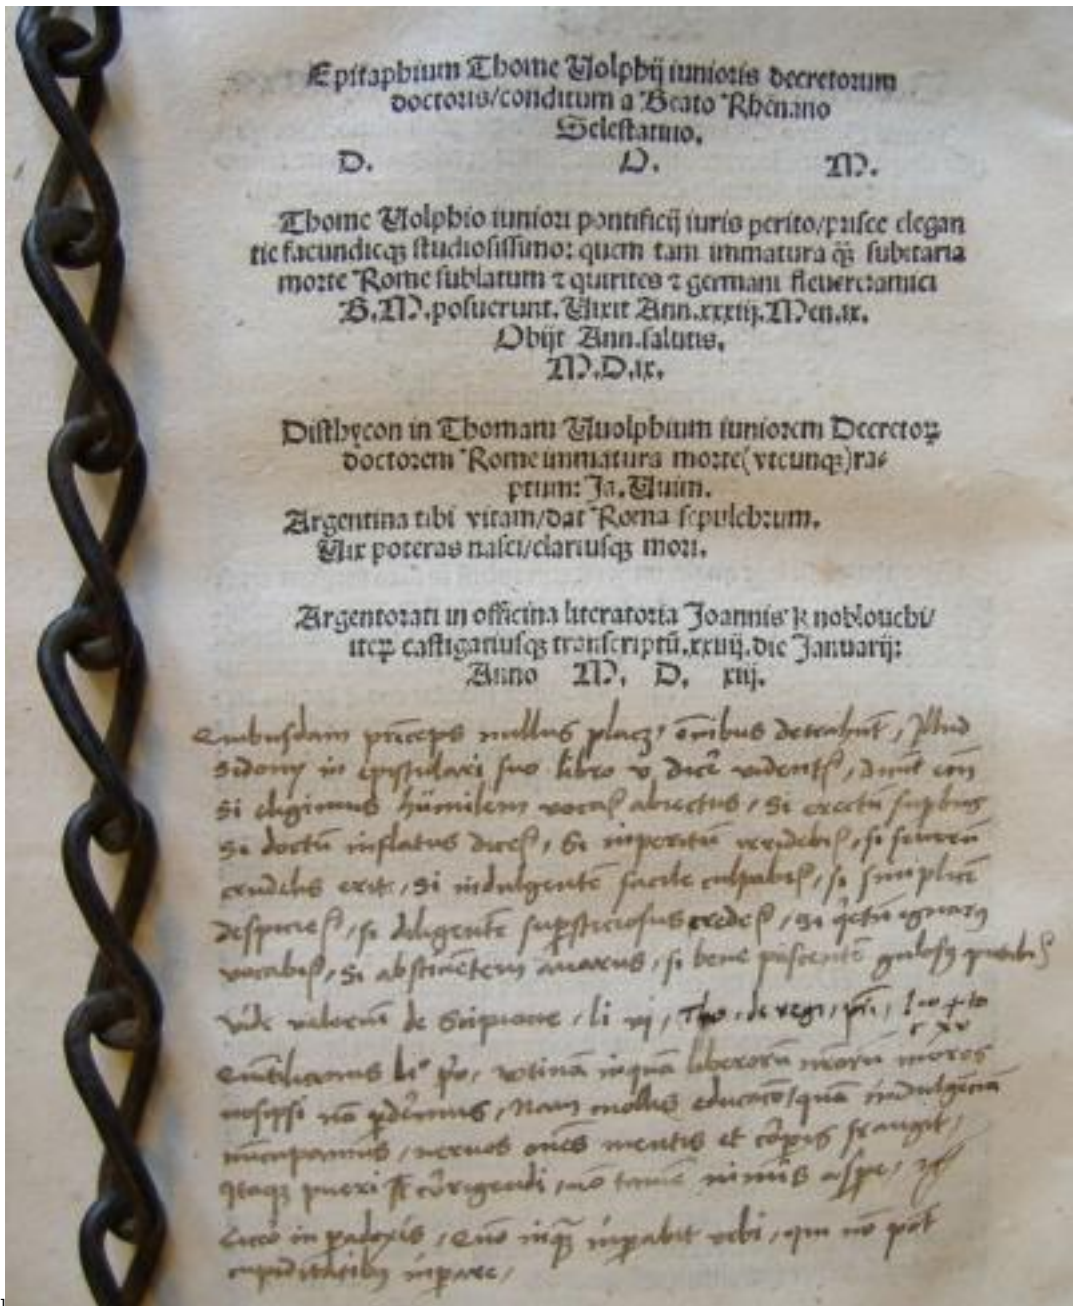 Epitaphium Thome Volphij iunioris decretorum
doctoris/conditum a Beato Rhenano
Selestatino.
D. O. M.
Thome Volphio iuniori pontificij iuris perito/prisce elegan
tie facundieqꝫ studiosissimo: quem tam immatura qꝫ̃ subitaria
morte Rome sublatum ⁊ quirites ⁊ germani fleuere:amici
B.M.posuerunt. Vixit Ann.xxxiij.Men.ix.
Obijt Ann.salutis.
M.D.ix.
Disthycon in Thomam Vuolphium iuniorem Decretoꝝ
doctorem Rome immatura morte(vtcunqꝫ)ra-
ptum: Ja. Vuim.
Argentina tibi vitam/dat Roma sepulchrum.
Vix poteras nasci/clariusqꝫ mori.
Argentorati in officina literatoria Joannis Knoblouchi/
iteꝝ castigatiusqꝫ transcriptũ.xxiiij.die Januarij:
Anno M. D. xiij.
Quibusdam prīceps nullus placꝫ, oībus detrahūt, Illud
Sidonij in epistolari suo libro dicere
Si eligimus humilem vocat abiectus, Si erectū supbus
Si doctū inflatus, Si imperitū, si seuerū
crudelis, Si indulgentē facile, si simplicē
si diligentē supsticiosus, Si
Si abstinentem auarus, si bene pascentē
Vide de Scipione, li vj, de regi, pri,
Quītilianus li° pº, vtinam liberorū mores
nosipsi nō pderemus, Nam mollis educatio, quā indulgētiā
nūcupamus, neruos oēs mentis et corpis frangit,
Itaqꝫ pueri corrigendi, nō tamē nimis aspe,
Cicero in padoxis, Quō impabit, qui nō pōt
cupiditatibꝫ impare,